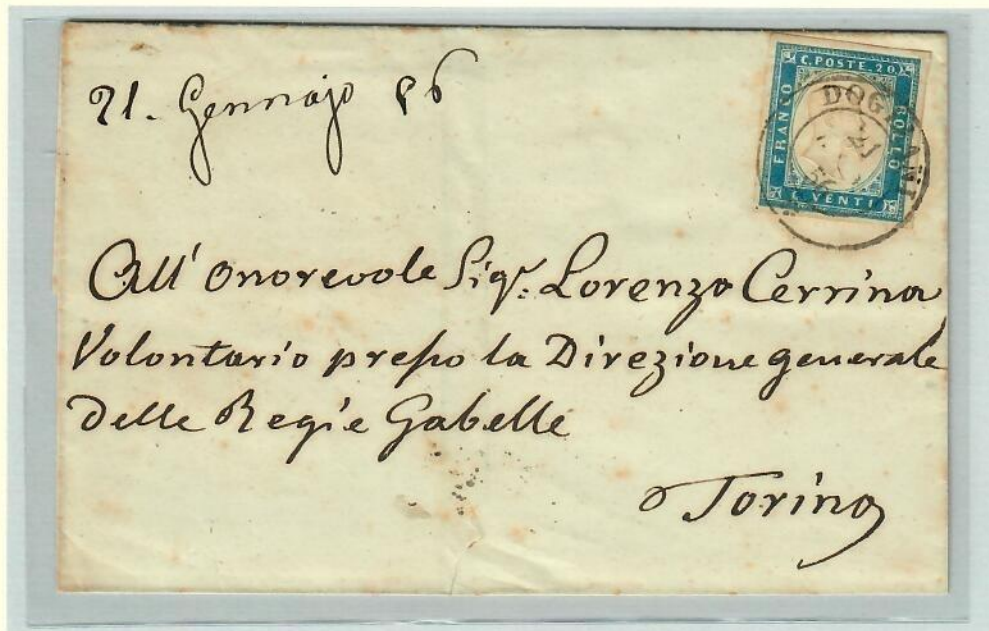 21. Gennajo 56
C. POSTE. 20
FRANCO
BOLLO
C. VENTI
DOGLIANI
21
56
All' Onorevole Sigr. Lorenzo Cerrina
Volontario presso la Direzione generale
delle Regie Gabelle
Torino